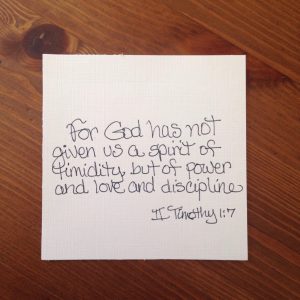 For God has not
given us a spirit of
timidity, but of power
and love and discipline
II Timothy 1:7